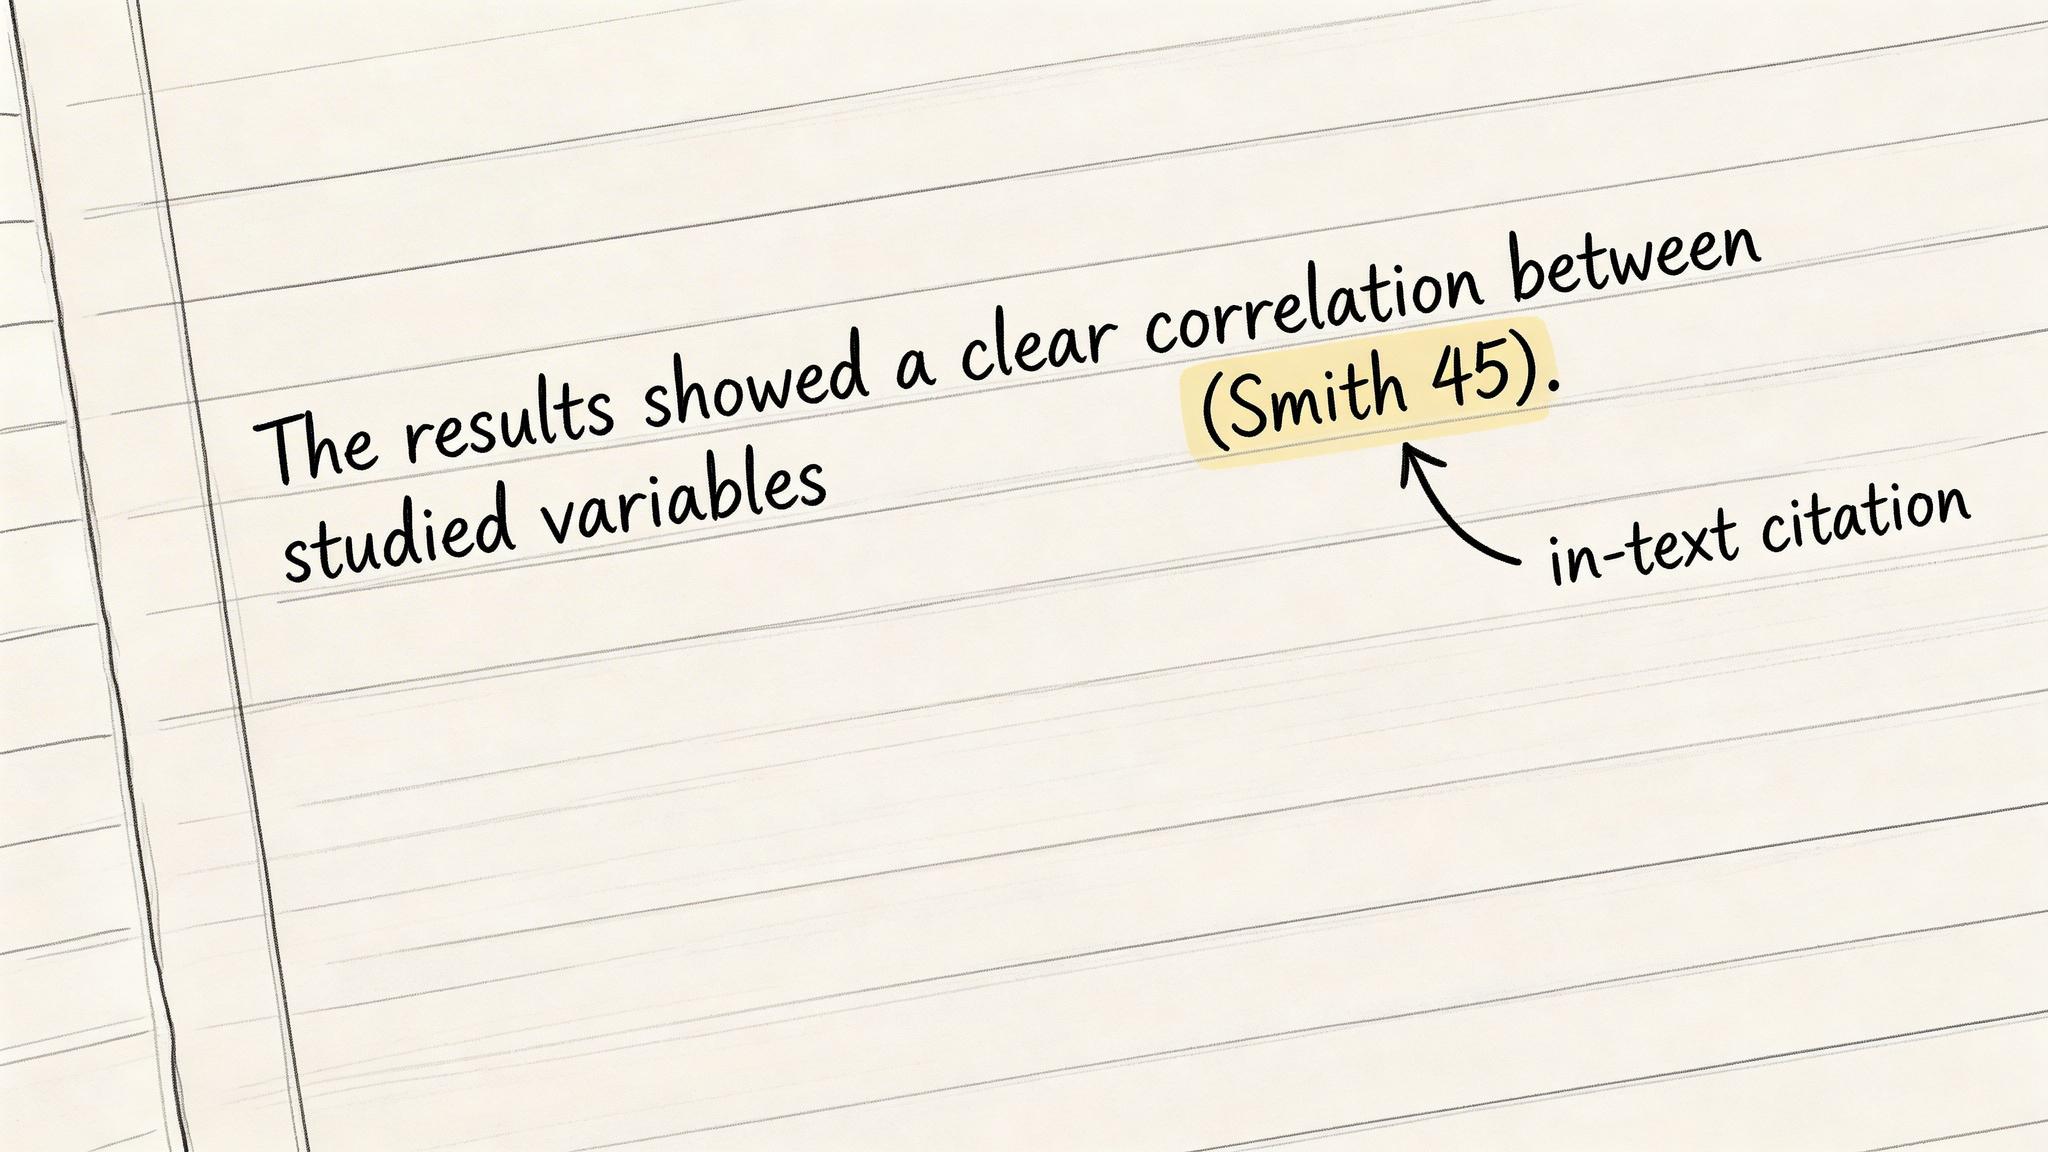 The results showed a clear correlation between
studied variables (Smith 45).
in-text citation